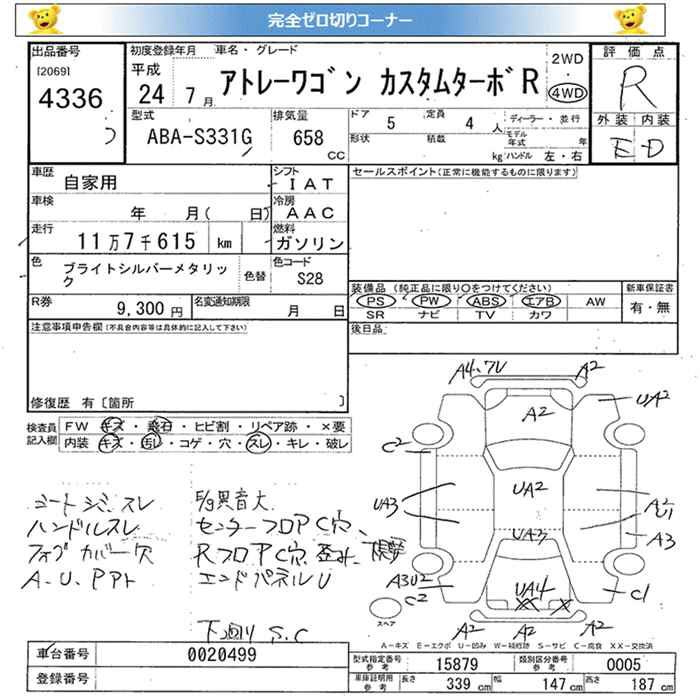 完全ゼロ切りコーナー
出品番号
[2069]
4336
初度登録年月
平成
24 7月
車名・グレード
アトレーワゴン カスタムターボR
2WD
・
4WD
評価点
R
外装 内装
E D
型式
ABA-S331G
排気量
658
CC
ドア 5 定員 4 人
形状 積載 kg
ディーラー・並行
モデル年式 年
ハンドル 左・右
車歴
自家用
シフト
IAT
車検
年 月( 日)
冷房
AAC
走行
11万7千615 km
燃料
ガソリン
色
ブライトシルバーメタリック
色替
色コード
S28
R券
9,300円
名変通知期限
月 日
セールスポイント(正常に機能するものに限ります)
装備品 (純正品に限り○をつけてください)
PS PW ABS エアB AW
SR ナビ TV カワ
新車保証書
有・無
後日品
注意事項申告欄(不具合内容等は具体的に記入して下さい)
修復歴 有〔箇所 〕
検査員記入欄
FW キズ・飛石・ヒビ割・リペア跡・×要
内装 キズ・汚レ・コゲ・穴・スレ・キレ・破レ
シートシミ.スレ
ハンドルスレ
フォグカバー欠
A.U.Pアト
E/g異音大
センターフロアC穴、
RフロアC穴.
エンドパネルU
下廻り S.C
A4.ワレ A2
A2
UA2
C2
UA2
UA3
UA3
A2
U1
A3
A3U2
C2
UA4
XX X
C1
A2 A2 A2
スペア
A-キズ E-エクボ U-凹み W-補修跡 S-サビ C-腐食 XX-交換済
車台番号
0020499
登録番号
型式指定番号
参考
15879
類別区分番号
参考
0005
車庫証明用
参考
長さ 339 cm 幅 147 cm 高さ 187 cm